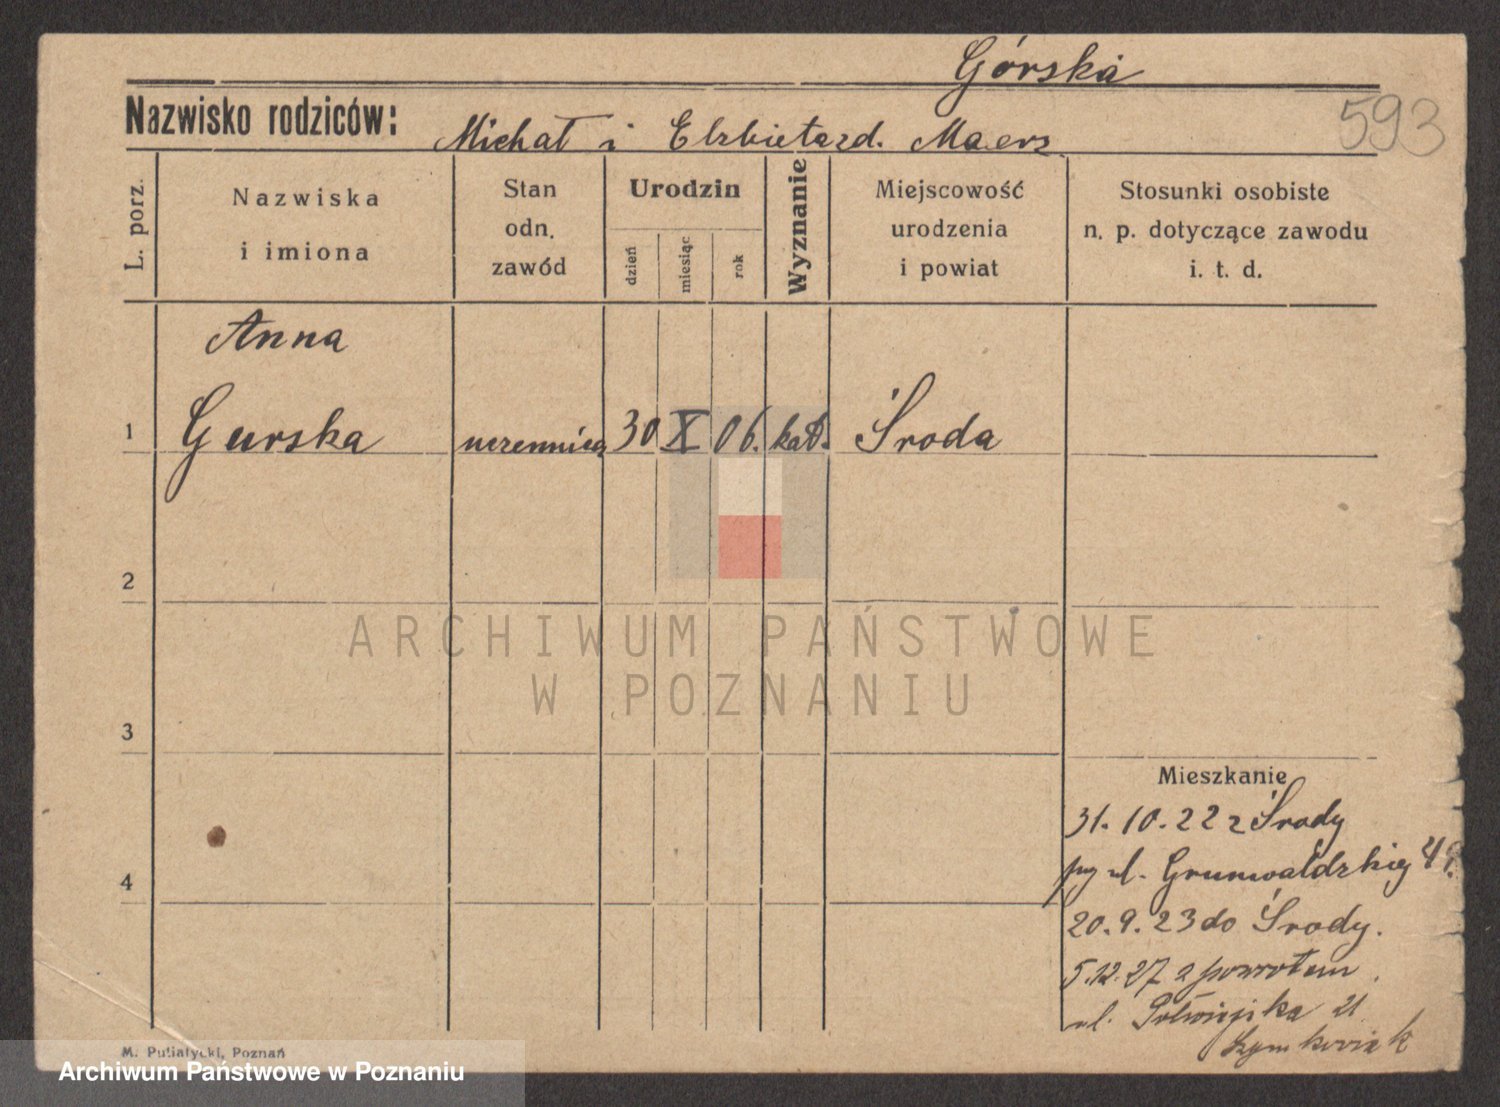 Górska
593
Nazwisko rodziców: Michał i Elzbieta zd. Maerz
L. porz.
Nazwiska i imiona
Stan odn. zawód
Urodzin
dzień
miesiąc
rok
Wyznanie
Miejscowość urodzenia i powiat
Stosunki osobiste n. p. dotyczące zawodu i. t. d.
Anna
1 Gurska uczennica 30 X 06. kat. Środa
2
ARCHIWUM PAŃSTWOWE
W POZNANIU
3
Mieszkanie
31. 10. 22 z Środy
ul. Grunwaldzkiej
4
20. 9. 23 do Środy.
5.12.27 z powrotem
ul. Półwiejska 21
Szymkowiak
M. Putiatycki, Poznań
Archiwum Państwowe w Poznaniu